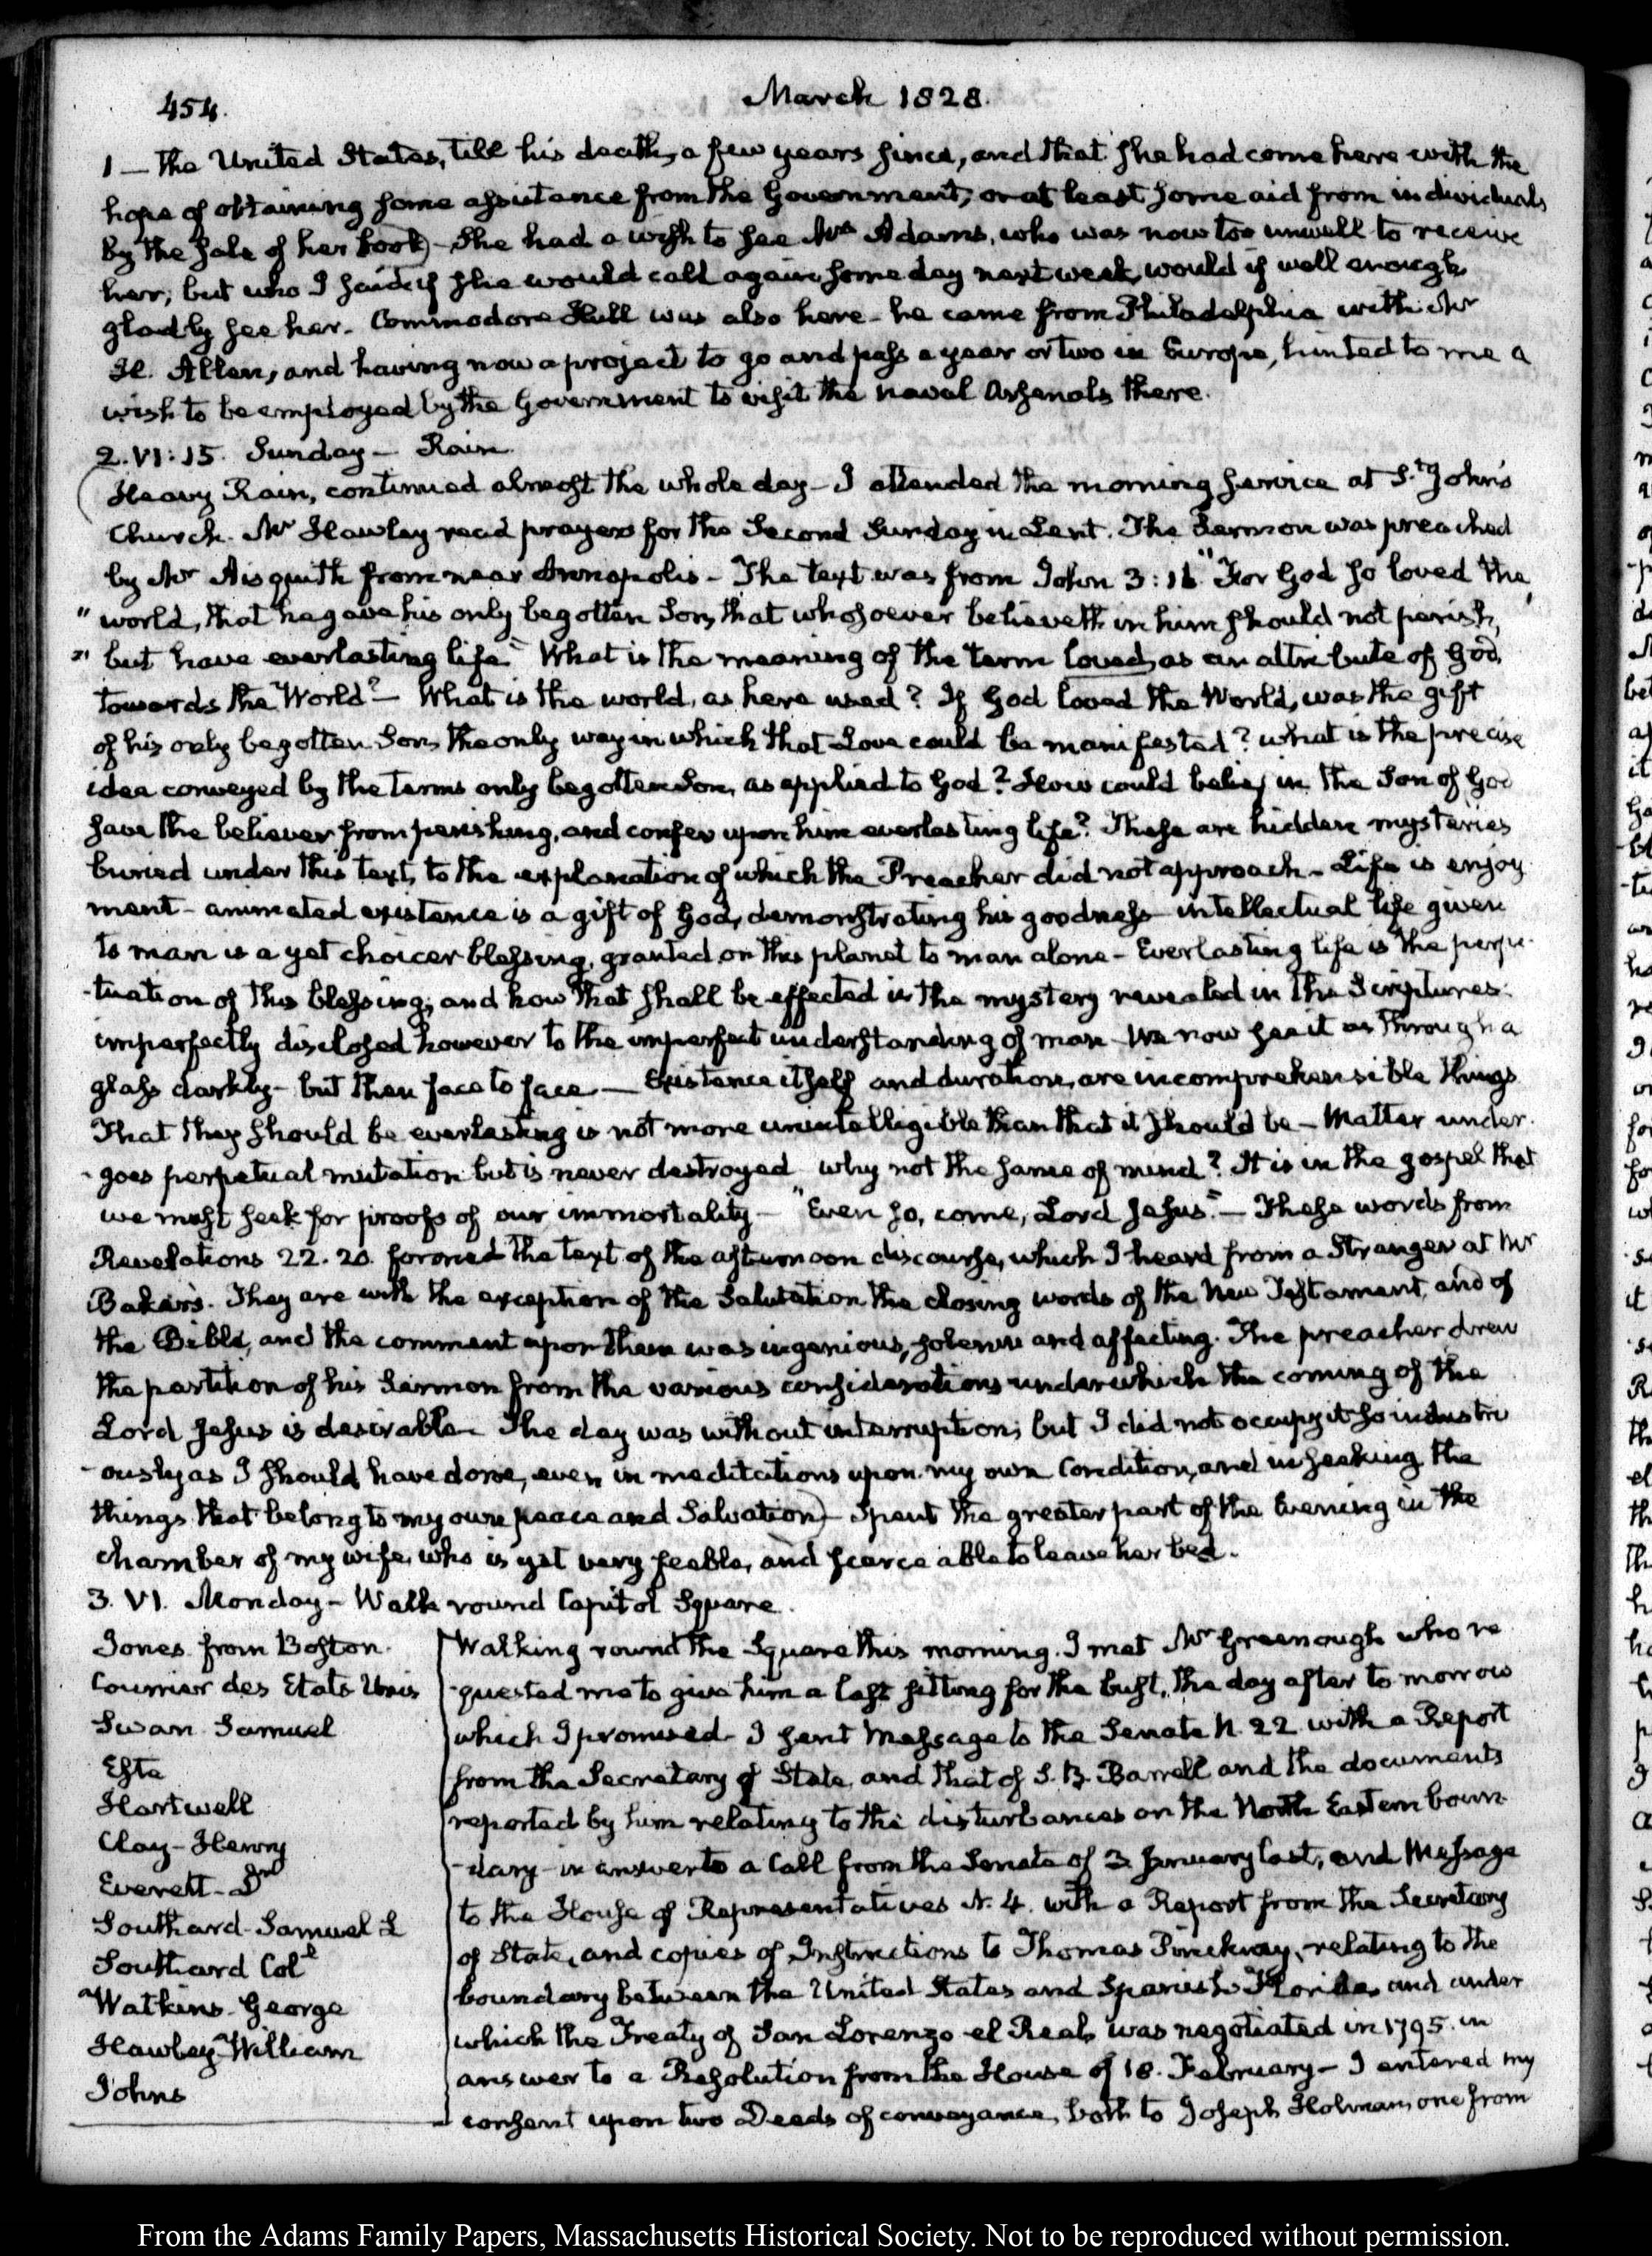 454.
March 1828.
1 — the United States, till his death, a few years since, and that she had come here with the
hope of obtaining some assistance from the Government, or at least some aid from individuals
by the sale of her book) – She had a wish to see Mrs Adams, who was now too unwell to receive
her; but who I said if she would call again some day next week, would if well enough
gladly see her. Commodore Hull was also here – he came from Philadelphia with Mr
H. Allen, and having now a project to go and pass a year or two in Europe, hinted to me a
wish to be employed by the Government to visit the naval Arsenals there.
2. VI:15. Sunday – Rain.
(Heavy Rain, continued almost the whole day – I attended the morning service at St. John's
Church. Mr Hawley read prayers for the Second Sunday in Lent. The Sermon was preached
by Mr Aisquith from near Annapolis – The text was from John 3:16 "For God so loved the
" world, that he gave his only begotten Son, that whosoever believeth in him should not perish,
" but have everlasting life." What is the meaning of the term loved, as an attribute of God,
towards the World? – What is the world, as here used? If God loved the World, was the gift
of his only begotten Son, the only way in which that Love could be manifested? what is the precise
idea conveyed by the terms only begotten Son, as applied to God? How could belief in the Son of God
save the believer from perishing, and confer upon him everlasting life? These are hidden mysteries
buried under this text, to the explanation of which the Preacher did not approach – Life is enjoy
ment – animated existence is a gift of God, demonstrating his goodness – intellectual life given
to man is a yet choicer blessing, granted on this planet to man alone – Everlasting life is the perpe-
-tuation of this blessing, and how that shall be effected is the mystery revealed in the Scriptures:
imperfectly disclosed however to the imperfect understanding of man – We now see it as through a
glass darkly – but then face to face — Existence itself and duration, are incomprehensible things
That they should be everlasting is not more unintelligible than that it should be – Matter under-
-goes perpetual mutation but is never destroyed why not the same of mind? It is in the gospel that
we must seek for proofs of our immortality – "Even so, come, Lord Jesus." – These words from
Revelations 22. 20. formed the text of the afternoon discourse, which I heard from a Stranger at Mr
Baker's. They are with the exception of the Salutation the closing words of the New Testament, and of
the Bible, and the comment upon them was ingenious, solemn and affecting. The preacher drew
the partition of his Sermon from the various considerations under which the coming of the
Lord Jesus is desirable – The day was without interruption; but I did not occupy it so industri
-ously as I should have done, even in meditations upon my own Condition, and in seeking the
things that belong to my own peace and Salvation) – Spent the greater part of the Evening in the
chamber of my wife, who is yet very feeble, and scarce able to leave her bed.
3. VI. Monday – Walk round Capitol Square.
Jones from Boston.
Courier des Etats Unis
Swan Samuel
Este
Hartwell
Clay – Henry
Everett – Dr
Southard – Samuel L
Southard Coll
Watkins – George
Hawley – William
Johns
Walking round the Square this morning. I met Mr Greenough who re
-quested me to give him a last sitting for the bust, the day after to morrow
which I promised – I sent Message to the Senate N. 22 with a Report
from the Secretary of State, and that of S. B. Barrell and the documents
reported by him relating to the disturbances on the North Eastern boun-
-dary – in answer to a Call from the Senate of January last, and Message
to the House of Representatives N. 4. with a Report from the Secretary
of State, and copies of Instructions to Thomas Pinckney, relating to the
boundary between the United States and Spanish Florida, and under
which the Treaty of San Lorenzo el Real, was negotiated in 1795. in
answer to a Resolution from the House of 18. February – I entered my
consent upon two Deeds of conveyance, both to Joseph Holman, one from
From the Adams Family Papers, Massachusetts Historical Society. Not to be reproduced without permission.